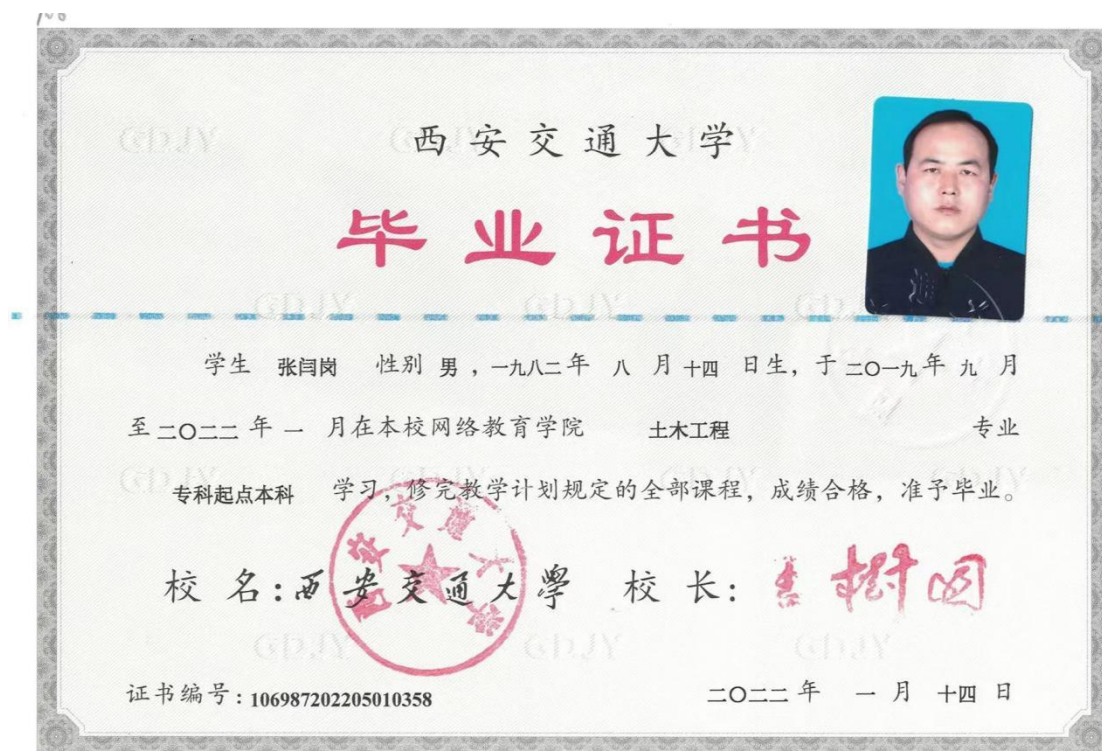 西安交通大学
毕业证书
学生 张闫岗 性别 男 ，一九八二年 八 月 十四 日生，于 二〇一九年 九 月
至 二〇二二 年 一 月在本校网络教育学院 土木工程 专业
专科起点本科 学习，修完教学计划规定的全部课程，成绩合格，准予毕业。
校 名：西安交通大學 校 长：
证书编号：106987202205010358 二〇二二 年 一 月 十四 日
GDJY